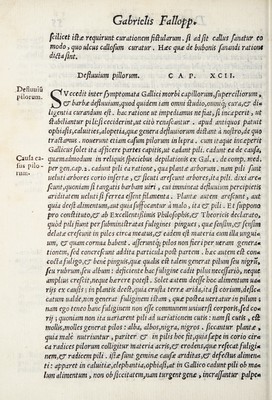 Gabrielis Fallopp.
scilicet istæ requirunt curationem fistularum. si ad sit callus sanatur eo
modo, quo ulcus callosum curatur. Hæc quæ de bubonis sanandi ratione
dicta sint.
Defluuium pilorum. CAP. XCII.
Defluuiũ
pilorum.
SVccedit inter symptomata Gallici morbi capillorum, superciliorum,
& barbæ defluuium, quod quidem iam omni studio, omniq; cura, & di-
ligentia curandum est. hac ratione ut impediamus ne fiat, si inceperit, &
stabiliamus pilos si ceciderint, at citò renascantur. apud antiquos patuit
ophiasis, caluities, alopetia, quæ genera defluuiorum distant à nostro, de quo
tractamus. nouerunt etiam casum pilorum in lepra. cum itaque inceperit
Gallicus solet ita afficere partes capitis, ut cadant pili. cadunt ea de causa,
Causa ca-
sus pilo-
rum.
quemadmodum in reliquis speciebus depilationis ex Gal. 1. de comp. med.
per gen. cap. 2. cadunt pili ea ratione, qua plantæ arborum. nam pili sunt
ueluti arbores corio infertæ, & sicuti arescunt arbores, ita pili. dixi are-
scunt, quoniam si tangatis barbam uiri, cui imminet defluuium percipietis
ariditatem ueluti si ferrea essent filamenta. Plantæ autem arescunt, aut
quia deest alimentum, aut quia suffocantur à malo, ita & pili. Et suppono
pro constituto, & ab Excellentissimis Philosophis, & Theoricis declarato,
quòd pili fiunt per subministratas fuligines pingues, quæ sensim, & sensim
delatæ crescunt in pilos circa meatus, & eadem est materia cum illa unguiũ,
ut, & quam cornua habent. asserantq; pilos non fieri per ueram genera-
tionem, sed concrescunt addita particula post partem. hæc autem est con-
cocta fuligo, & bene pinguis, quæ qualis est talem generat pilum seu nigrũ,
seu rubrum, seu album: deficiente hac fuligine cadit pilus necessariò, neque
amplius crescit, neque hærere potest. Solet autem deesse hoc alimentum uæ
rijs ex causis; in plantis deest, quia crescunt terra arida, ita si corium, desic-
catum ualde, non generat fuliginem istam, quæ postea uertatur in pilum;
nam ego teneo hanc fuliginem non esse communem uniuersi corporis, sed co-
rij; quoniam non ita uarierant pili ad uariationem cutis: nam si cutis est
mollis, molles generat pilos: alba, albos, nigra, nigros. siccantur plantæ
quia malè nutriuntur, pariter & in pilis hoc fit, quia sæpe in corio cir-
ca radices pilorum colligitur materia acris, & erodens, quæ resecat fuligi-
nem, & radicem pili. istæ sunt geminæ causæ ariditatis, & defectus alimen-
ti: apparet in caluitie, elephantia, ophiasi, at in Gallico cadunt pili ob ma-
lum alimentum, non ob siccitatem, nam turgent genæ, incrassatur palpe-